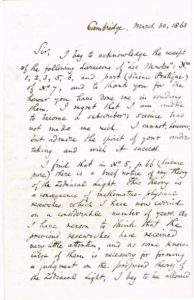 Cambridge, March 30, 1863
Sir, I beg to acknowledge the receipt
of the following
1, 2, 3, 5, 6, and part (Science Pratique)
of No 7, and to thank you for the
honour you have done me in sending
them. I regret that I am unable
to become a subscriber; science has
not made me rich. I cannot, however,
but admire the spirit of your under-
taking and wish it success.
I find that in No 5, p. 66 (Science
pure) there is a brief notice of my theory
of the zodiacal light. This theory is
a consequence of mathematico-physical
researches which I have now carried
on a considerable number of years. As
I have reason to think that the
previous researches have received
very little attention, and as some know-
ledge of them is necessary for forming
a judgment on the proposed theory of
the zodiacal light, I beg to be allowed